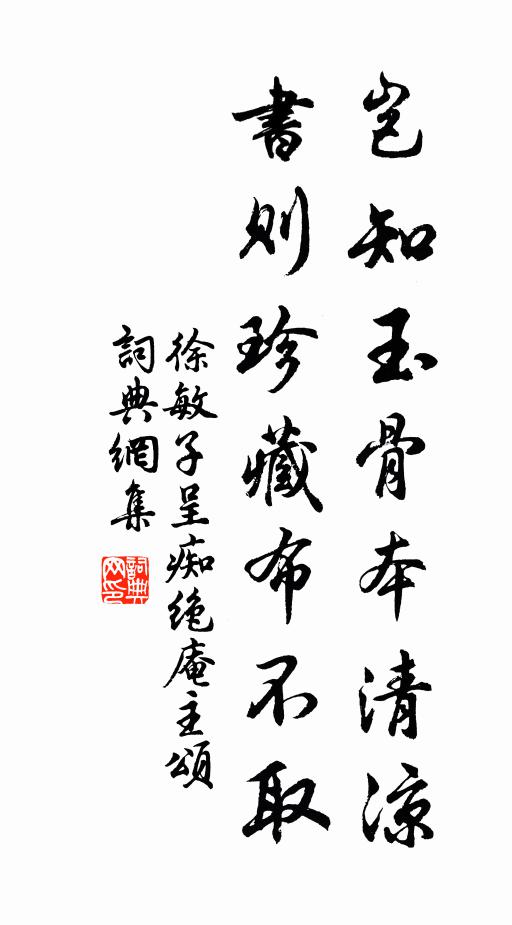 岂知玉骨本清涼
書則珍藏布不取
徐敏子呈痴绝庵主頌
詞典網集
詞典網印